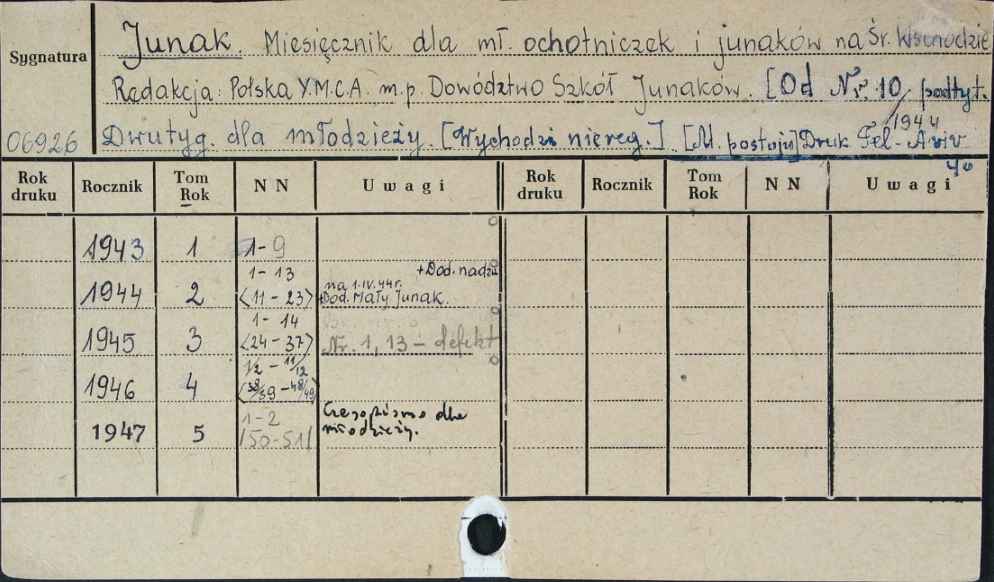 Junak. Miesięcznik dla mł. ochotniczek i junaków na Śr. Wschodzie
Sygnatura
Redakcja: Polska Y.M.C.A. m.p. Dowództwo Szkół Junaków. [Od Nr. 10/1944 podtyt.
06926 Dwutyg. dla młodzieży. [Wychodzi niereg.]. [M. postoju] Druk Tel-Aviv
4°
Rok druku Rocznik Tom Rok NN Uwagi Rok druku Rocznik Tom Rok NN Uwagi
1943 1 1-9
1-13 +Dod. nadzw.
na 1.IV.44r.
1944 2 <11-23> +Dod. Mały Junak.
1-14
1945 3 <24-37> Nr. 1, 13 - defekt
1/2 - 11/12
1946 4 <38/39 - 48/49>
1-2 Czasopismo dla
1947 5 /50-51/ młodzieży.